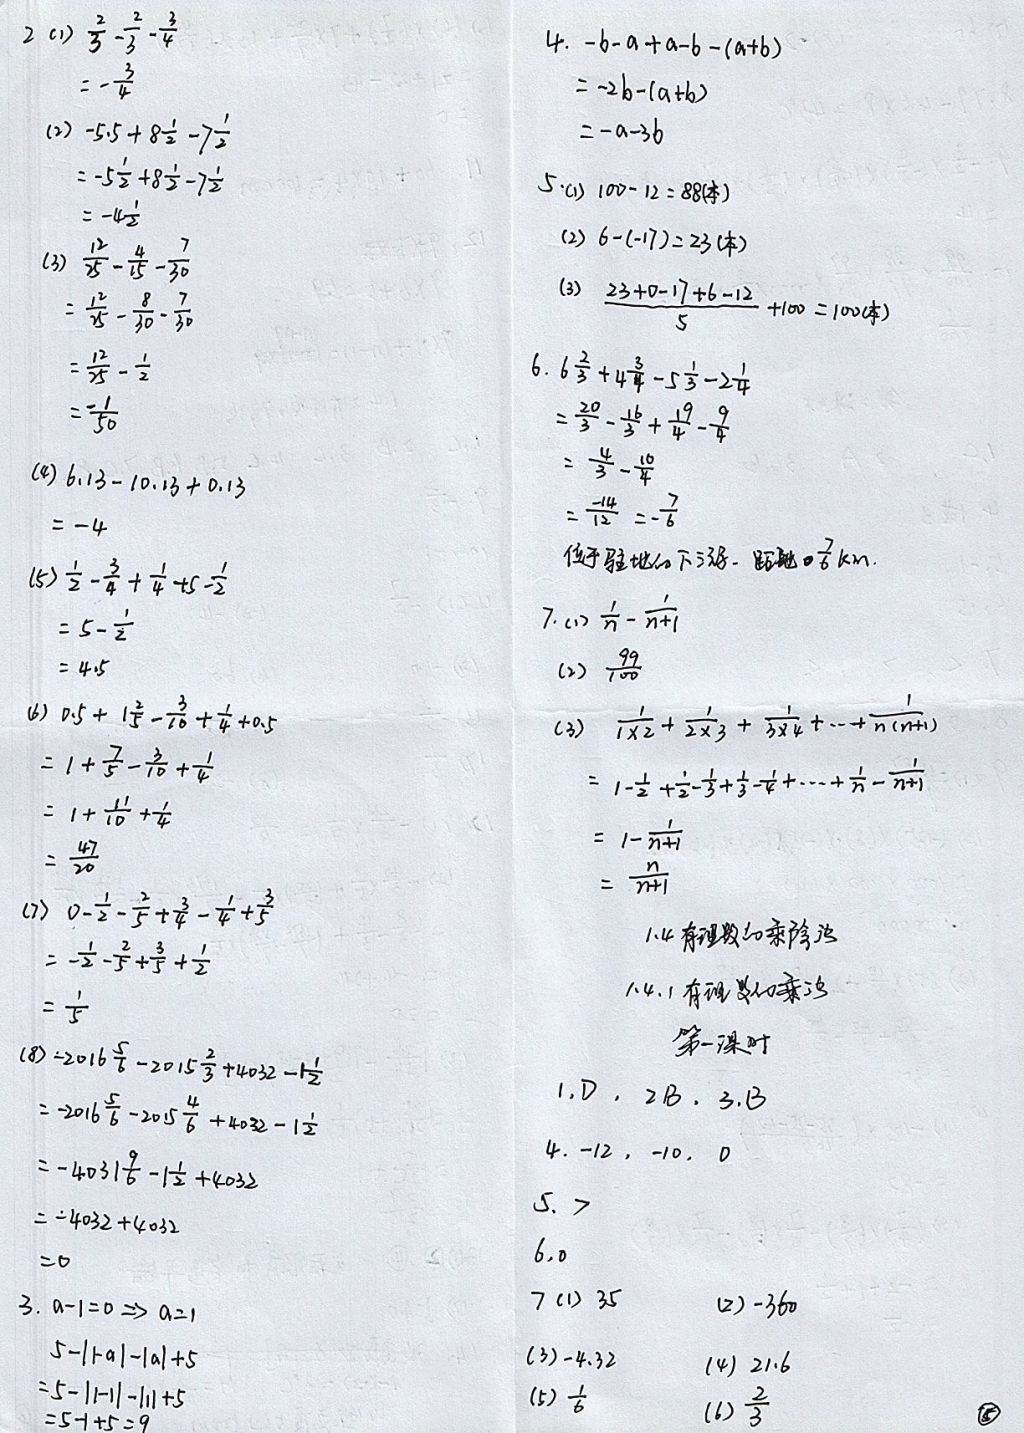 2 (1) 2/3 - 2/3 - 3/4
= -3/4
(2) -5.5 + 8 1/2 - 7 1/2
= -5 1/2 + 8 1/2 - 7 1/2
= -4 1/2
(3) 12/25 - 4/15 - 7/30
= 12/25 - 8/30 - 7/30
= 12/25 - 1/2
= -1/50
(4) 6.13 - 10.13 + 0.13
= -4
(5) 1/2 - 3/4 + 1/4 + 5 - 1/2
= 5 - 1/2
= 4.5
(6) 0.5 + 1 2/5 - 3/10 + 1/4 + 0.5
= 1 + 7/5 - 3/10 + 1/4
= 1 + 11/10 + 1/4
= 47/20
(7) 0 - 1/2 - 2/5 + 3/4 - 1/4 + 3/5
= -1/2 - 2/5 + 3/5 + 1/2
= 1/5
(8) -2016 5/6 - 2015 2/3 + 4032 - 1 1/2
= -2016 5/6 - 2015 4/6 + 4032 - 1 1/2
= -4031 9/6 - 1 1/2 + 4032
= -4032 + 4032
= 0
3. a-1=0 => a=1
5-|1-a|-|a|+5
=5-|1-1|-|1|+5
=5-1+5=9
4. -b-a+a-b-(a+b)
= -2b-(a+b)
= -a-3b
5. (1) 100-12=88(本)
(2) 6-(-17)=23(本)
(3) (23+0-17+6-12)/5 +100=100(本)
6. 6 2/3 + 4 3/4 - 5 1/3 - 2 1/4
= 20/3 - 16/3 + 19/4 - 9/4
= 4/3 - 10/4
= -14/12 = -7/6
位于驻地的下游. 距驻地 7/6 km.
7. (1) 1/n - 1/(n+1)
(2) 99/100
(3) 1/(1×2) + 1/(2×3) + 1/(3×4) + … + 1/(n(n+1))
= 1 - 1/2 + 1/2 - 1/3 + 1/3 - 1/4 + …… + 1/n - 1/(n+1)
= 1 - 1/(n+1)
= n/(n+1)
1.4 有理数的乘除法
1.4.1 有理数的乘法
第一课时
1.D. 2B. 3.B
4. -12, -10, 0
5. >
6.0
7 (1) 35 (2) -360
(3) -4.32 (4) 21.6
(5) 1/6 (6) 2/3
⑤